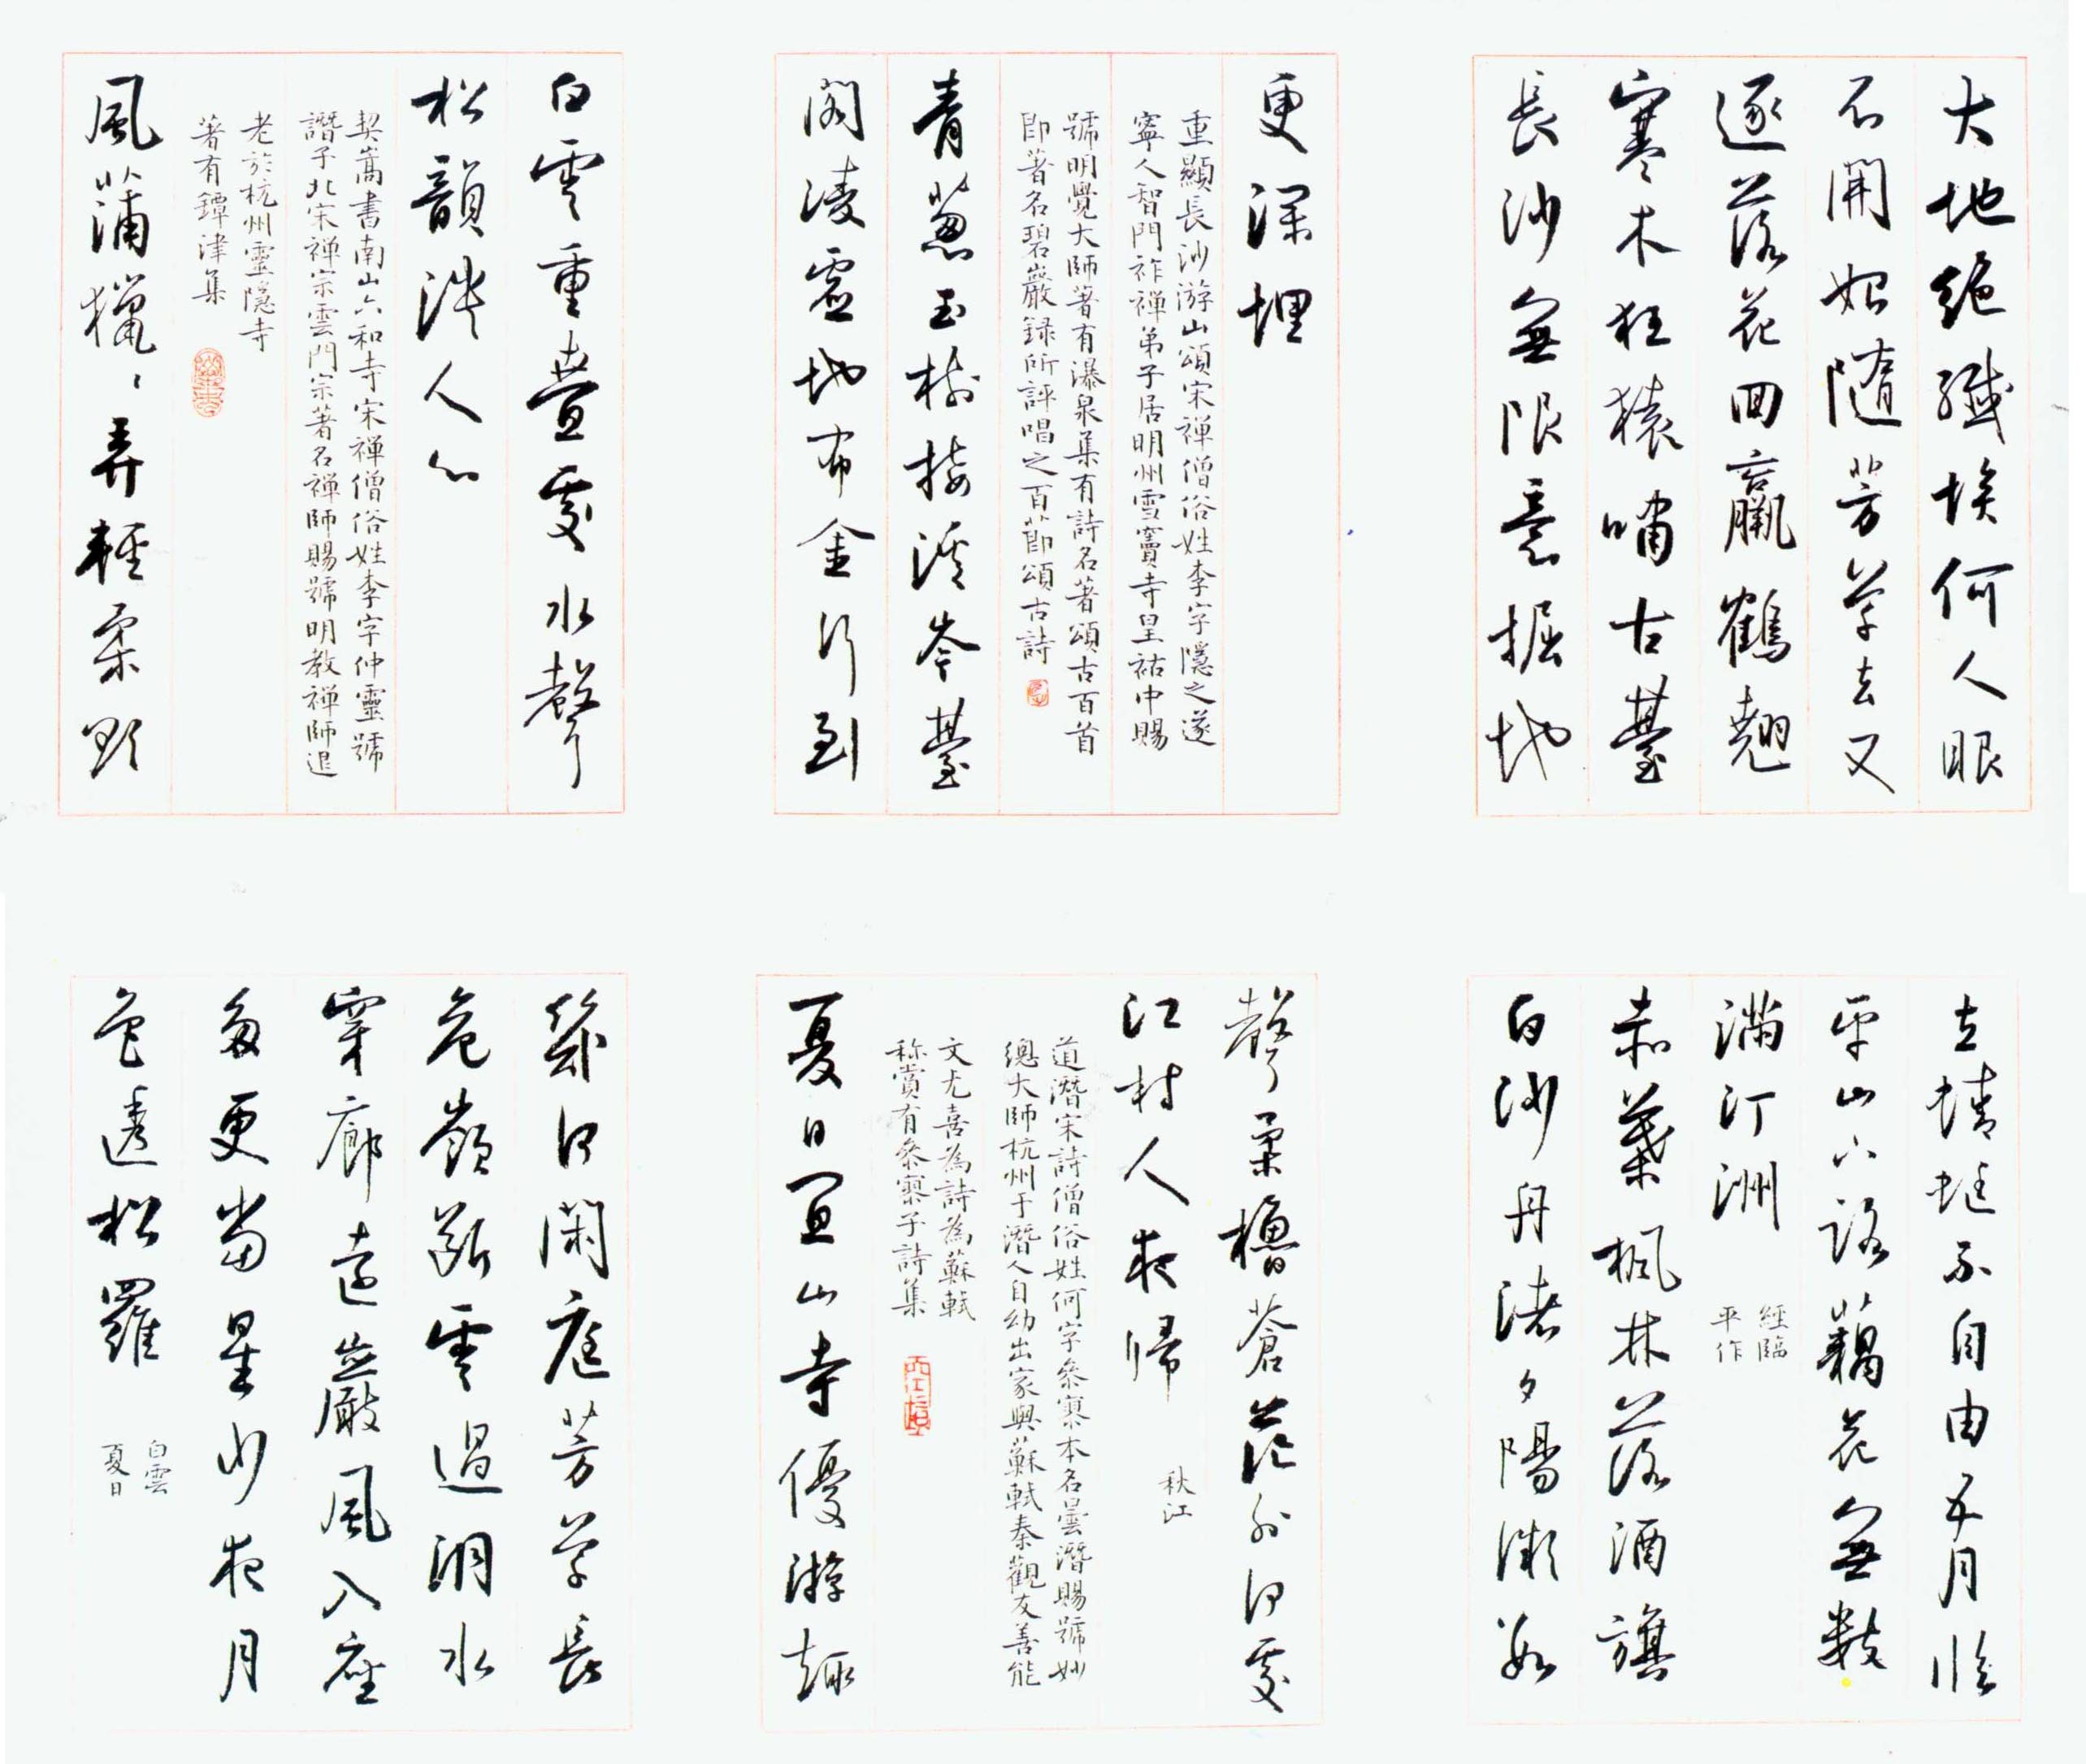 大地絕纖埃何人眼
不開始隨芳草去又
逐落花回羸鶴翹
寒木狂猿嘯古臺
長沙無限意掘地
更深埋
重顯長沙游山頌宋禪僧俗姓李字隱之遂
寧人智門祚禪弟子居明州雪竇寺皇祐中賜
號明覺大師著有瀑泉集有詩名著頌古百首
即著名碧巖録所評唱之百節頌古詩
青蔥玉樹接溪岑臺
閣凌虛地布金行到
白雲重疊處水聲
松韻淡人心
契嵩書南山六和寺宋禪僧俗姓李字仲靈號
潛子北宋禪宗雲門宗著名禪師賜號明教禪師退
老於杭州靈隱寺
著有鐔津集
風蒲獵〻弄輕柔欲
立蜻蜓不自由五月臨
平山下路藕花無數
滿汀洲
經臨
平作
赤葉楓林落酒旗
白沙丹渚夕陽微數
聲柔櫓蒼茫外何處
江村人夜歸
秋江
道潛宋詩僧俗姓何字參寥本名曇潛賜號妙
總大師杭州于潛人自幼出家與蘇軾秦觀友善能
文尤喜為詩為蘇軾
称賞有參寥子詩集
夏日宜山寺優游趣
幾何閑庭芳草長
危嶺斷雲過澗水
穿廊遠巖風入座
多更當星少夜月
色透松羅
白雲
夏日